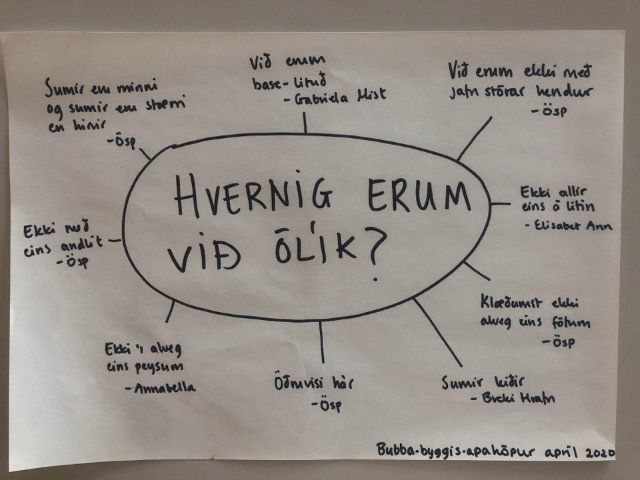 Við erum
base-lituð
- Gabriela Mist
Sumir eru minni
og sumir eru stærri
en hinir
- Ösp
Við erum ekki með
jafn stórar hendur
- Ösp
HVERNIG ERUM
VIÐ ÓLÍK?
Ekki allir
eins á litin
- Elísabet Ann
Ekki með
eins andlit
- Ösp
Klæðumst ekki
alveg eins fötum
- Ösp
Ekki í alveg
eins peysum
- Annabella
Öðruvísi hár
- Ösp
Sumir
- Breki Hrafn
Bubba-byggis-apahópur apríl 2020